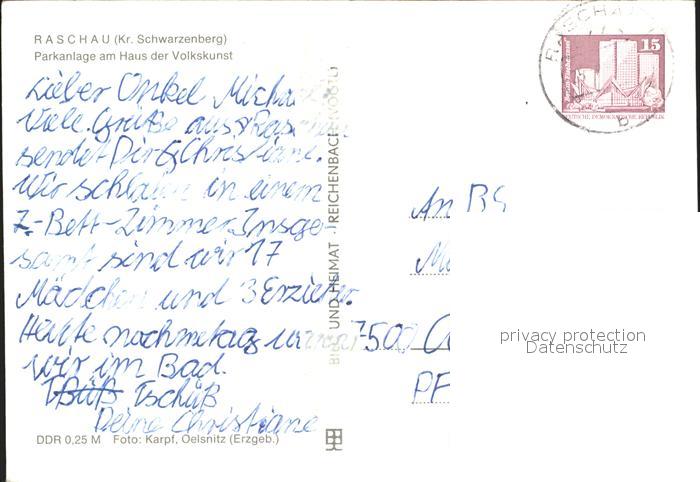 RASCHAU (Kr. Schwarzenberg)
Parkanlage am Haus der Volkskunst
Lieber Onkel Michael
Viele Grüße aus Raschau
sendet Dir Christiane.
Wir schlafen in einem
7-Bett-Zimmer. Insge-
samt sind wir 17
Mädchen und 3 Erzieher.
Heute nachmetag waren
wir im Bad.
Tschüß
Deine Christiane
DDR 0,25 M Foto: Karpf, Oelsnitz (Erzgeb.)
BILD UND HEIMAT REICHENBACH
RASCHAU
b
15
DEUTSCHE DEMOKRATISCHE REPUBLIK
An BG
7500 C
PF
privacy protection
Datenschutz